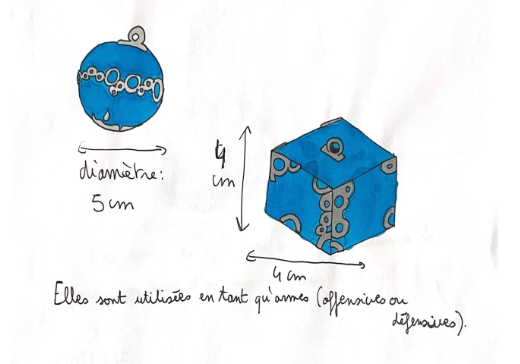 diamètre:
5 cm
4
cm
4 cm
Elles sont utilisées en tant qu'armes (offensives ou
défensives).